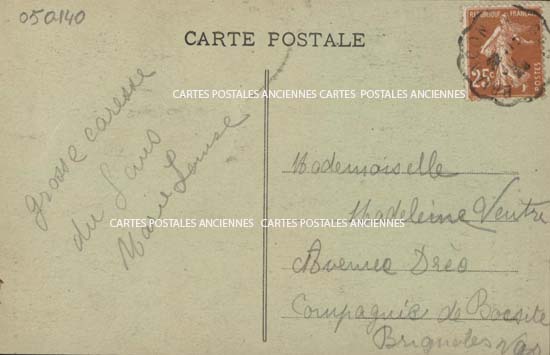 050140
CARTE POSTALE
REPUBLIQUE FRANÇAISE
25c
POSTES
CARTES POSTALES ANCIENNES CARTES POSTALES ANCIENNES
grosse caresse
du
Marie Louise
Mademoiselle
Madeleine Ventre
CARTES POSTALES ANCIENNES CARTES POSTALES ANCIENNES
Avenue Dréo
Compagnie de Bauxite
Brignoles Var